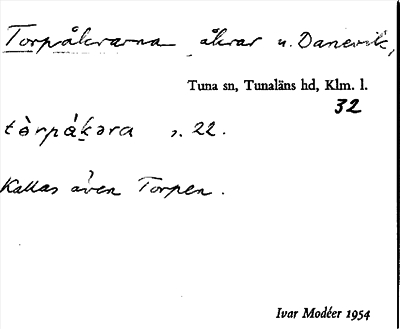 Torpåkrarna åkrar u. Danevik,
Tuna sn, Tunaläns hd, Klm. l.
32
tòrpákəra s. 22.
Kallas även Torpen.
Ivar Modéer 1954